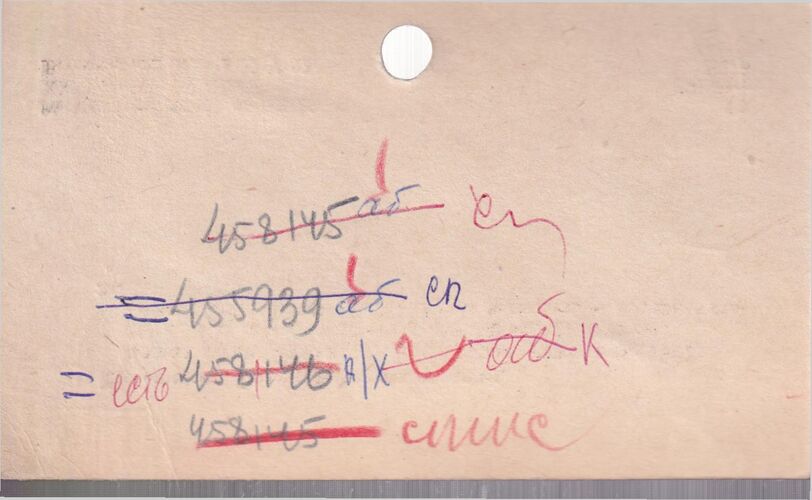 458145 аб сп
= 455939 аб сп
= есть 458146 к/х об К
458145 спис